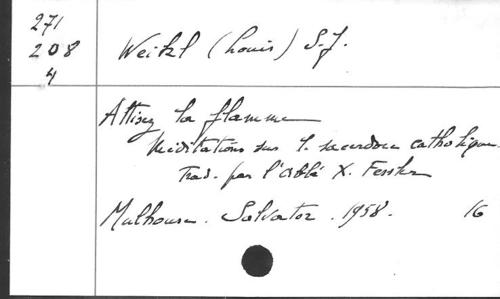 271
208
4
Weikl (Louis) S.J.
Attisez la flamme
Méditations sur l. sacerdoce catholique.
Trad. par l'abbé X. Fessler
Mulhouse. Salvator. 1958. 16